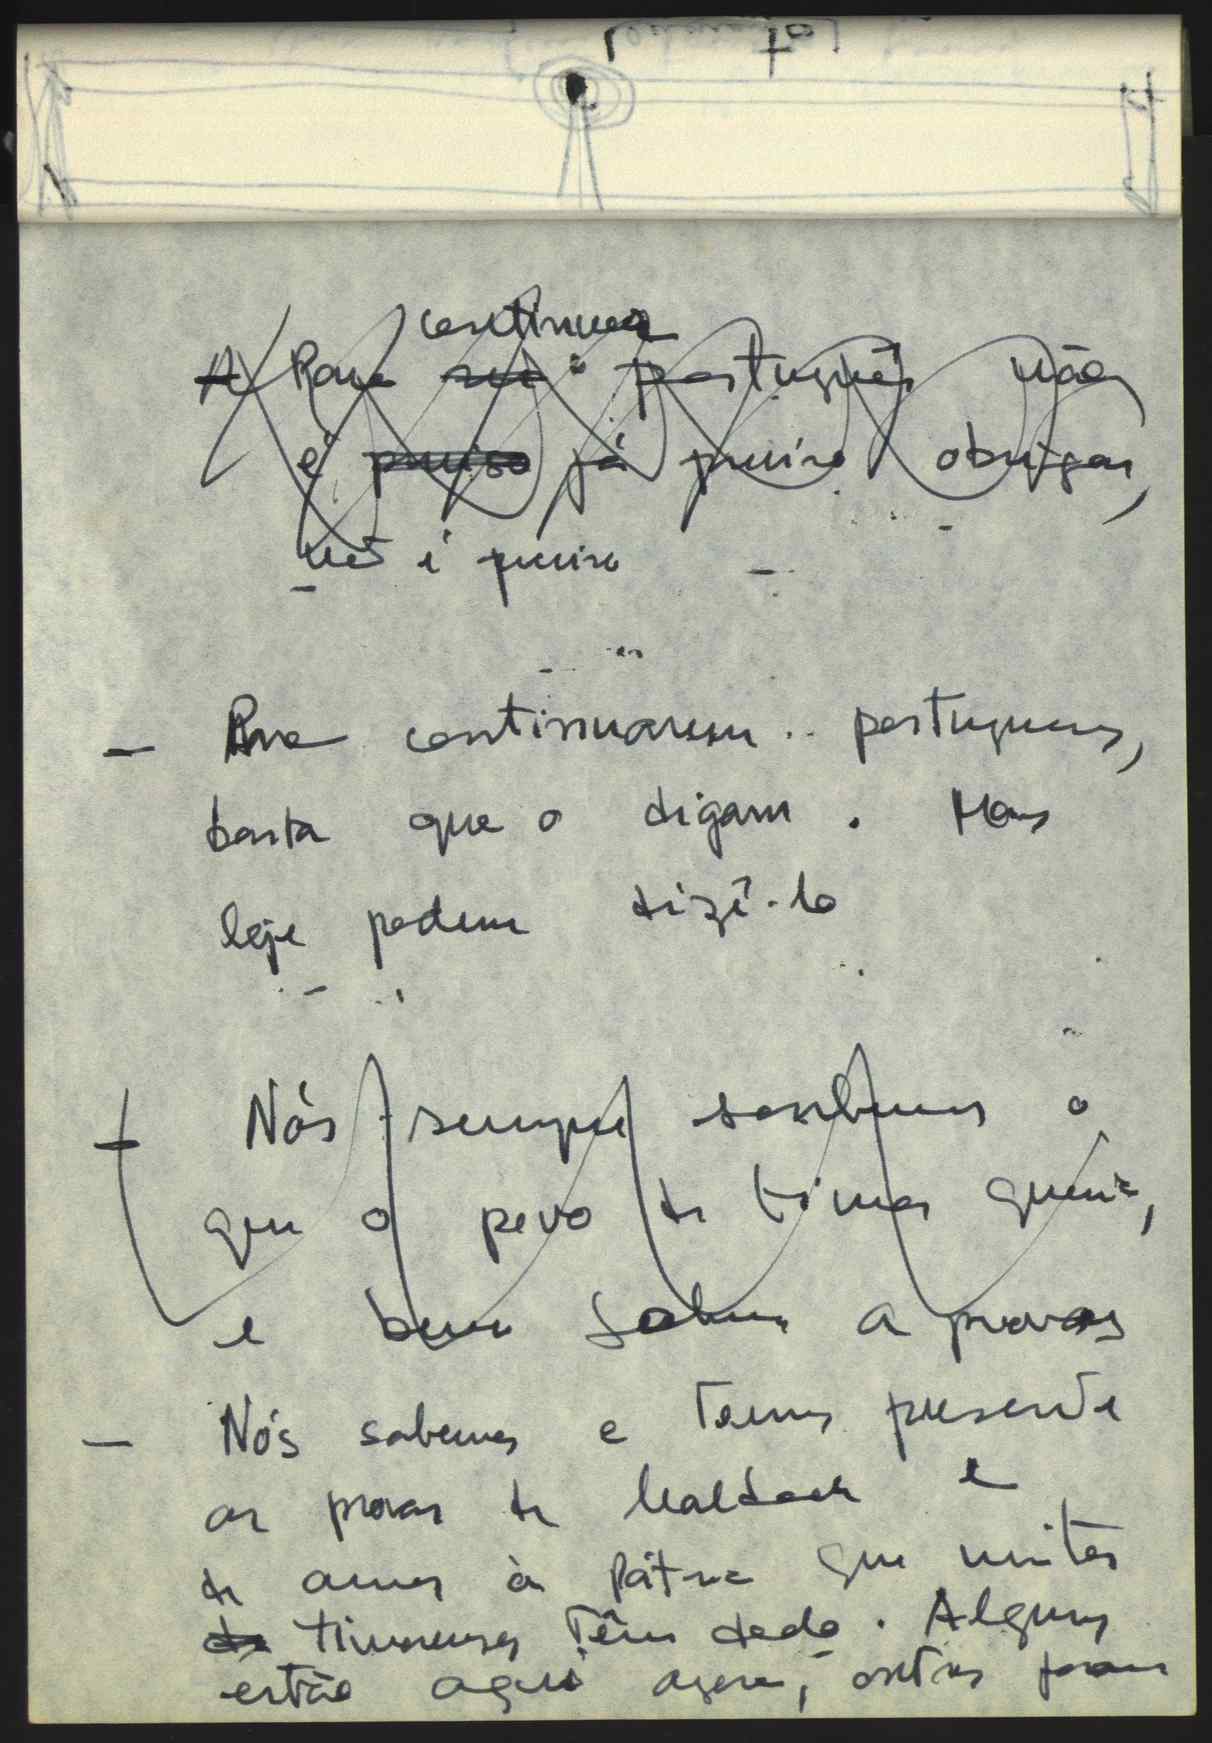 continuar
A Para ser português não
é preciso já preciso obrigar,
não é preciso
— Para continuarem portugueses,
basta que o digam. Mas
hoje podem dizê-lo
— Nós sempre soubemos o
que o povo de Timor queria,
e bem sabem a provas
— Nós sabemos e temos presente
as provas de lealdade e
de amor à Pátria que muitos
de timorenses têm dado. Alguns
estão aqui agora, outros foram